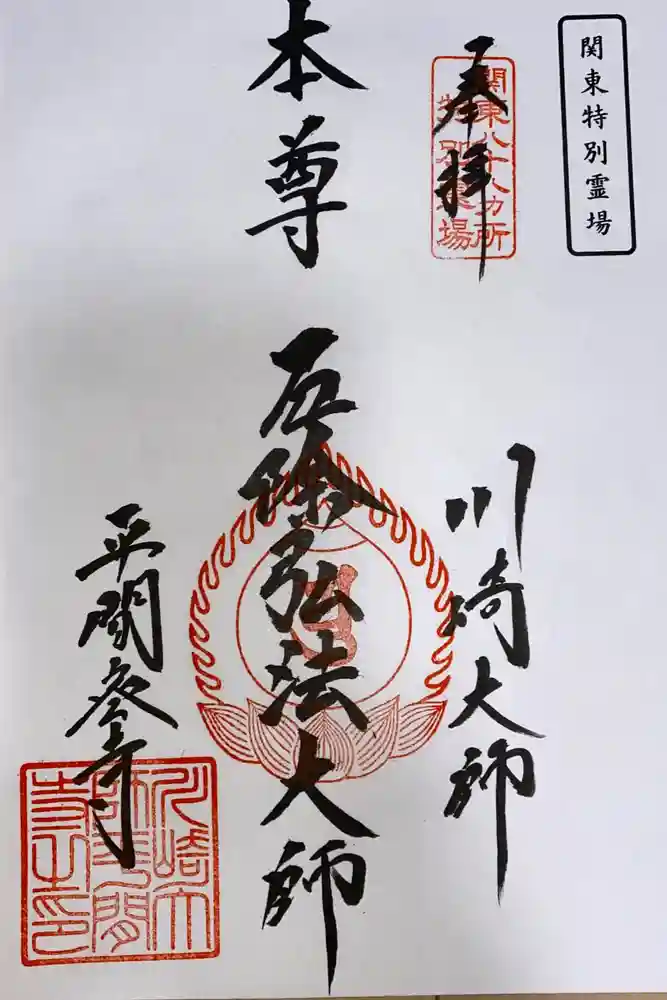 関東特別霊場
奉拝
関東八十八カ所
特別霊場
川崎大師
本尊
厄除弘法大師
平間寺